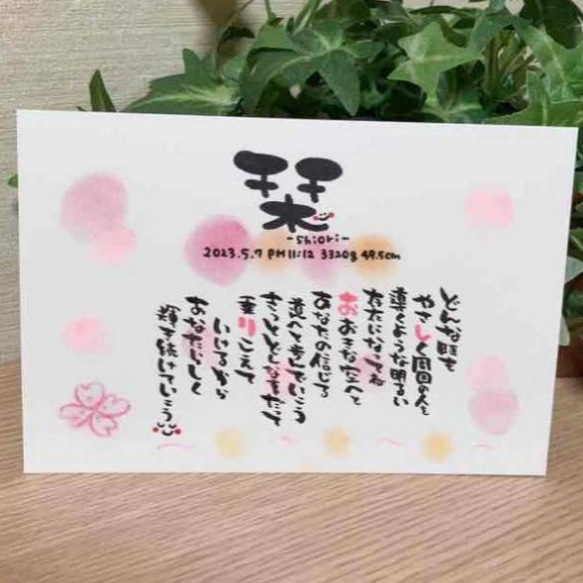 栞
-shiori-
2023.5.7 PM11:12 3320g 49.5cm
どんな時も
やさしく周囲の人を
導くような明るい
存在になってね
おおきな空へと
あなたの信じる
道へと歩んでいこう
きっとどんな時だって
乗りこえて
いけるから
あなたらしく
輝き続けていこう